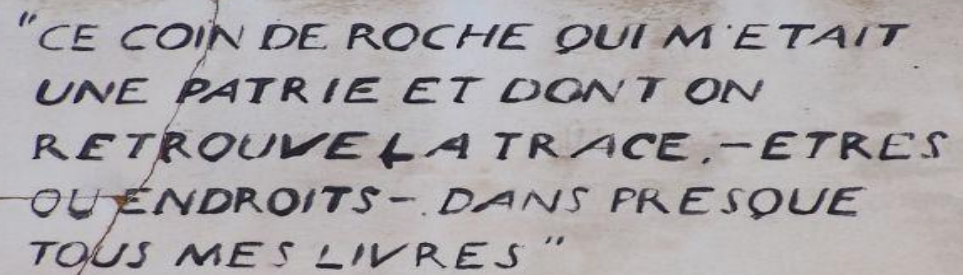 "CE COIN DE ROCHE QUI M'ETAIT
UNE PATRIE ET DONT ON
RETROUVE LA TRACE.-ETRES
OU ENDROITS-.DANS PRESQUE
TOUS MES LIVRES"